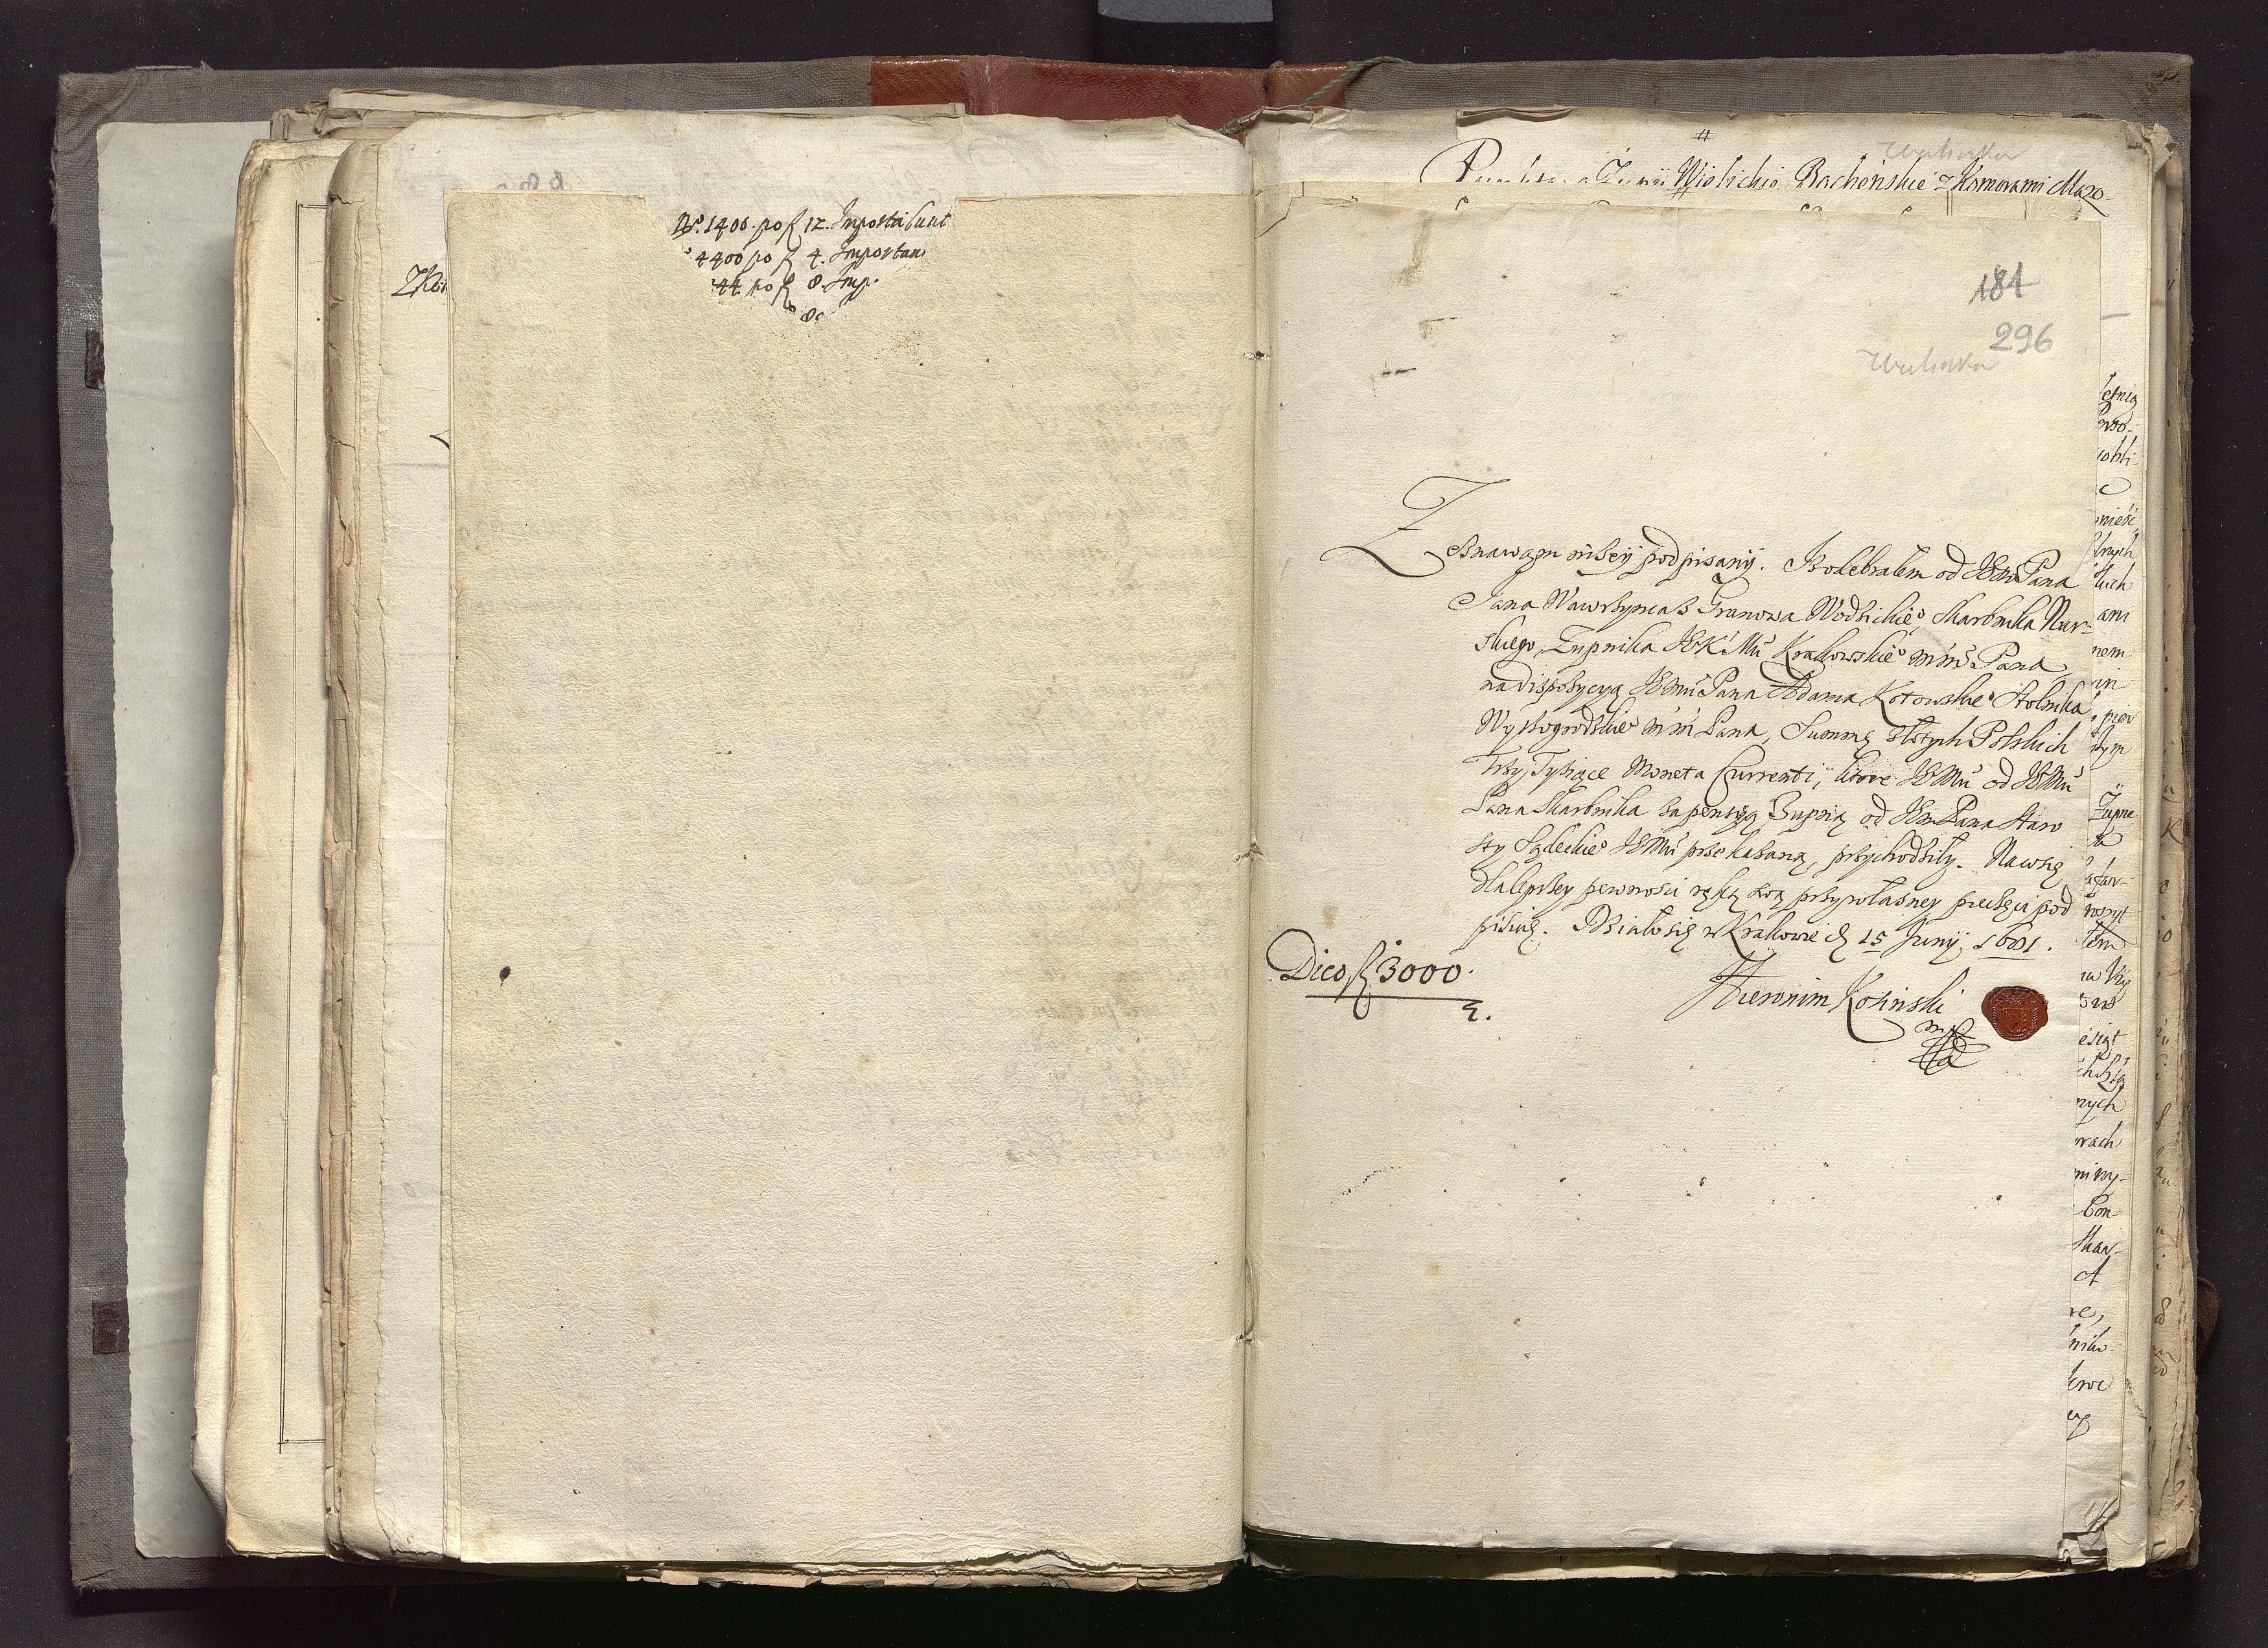 No. 1400. po fl 12. Importabunt
4400 po fl 4. Importan
44. po fl 8. Imp.
Wielickie Bocheńskie z Komorami Mazo-
184
296
Zeznawam niżey podpisany. Iz odebrałem od JEm Pana
Jana Wawrzynca z Granowa Wodzickie° Skarbnika Nur-
skiego, Zupnika JEKMci Krakowskie° mm Pana
na dispozycyą JEmci Pana Adama Kotowskie° Stolnika
Wyszogrodzkie° mm Pana, Summę złotych Polskich
Trzy Tysiące Moneta Currenti, ktore JEMci od JEMci
Pana Skarbnika za pensyą Zupną od JEm Pana Staro
sty Sądeckie° JEMci przekazaną, przychodziły. Na co się
dla lepszey pewnosci ręką swą przy własney pieczęci pod
pisuię. Działo się w Krakowie d 15 Junij 1681.
Dico fl 3000.
Hieronim Kosinski
mp